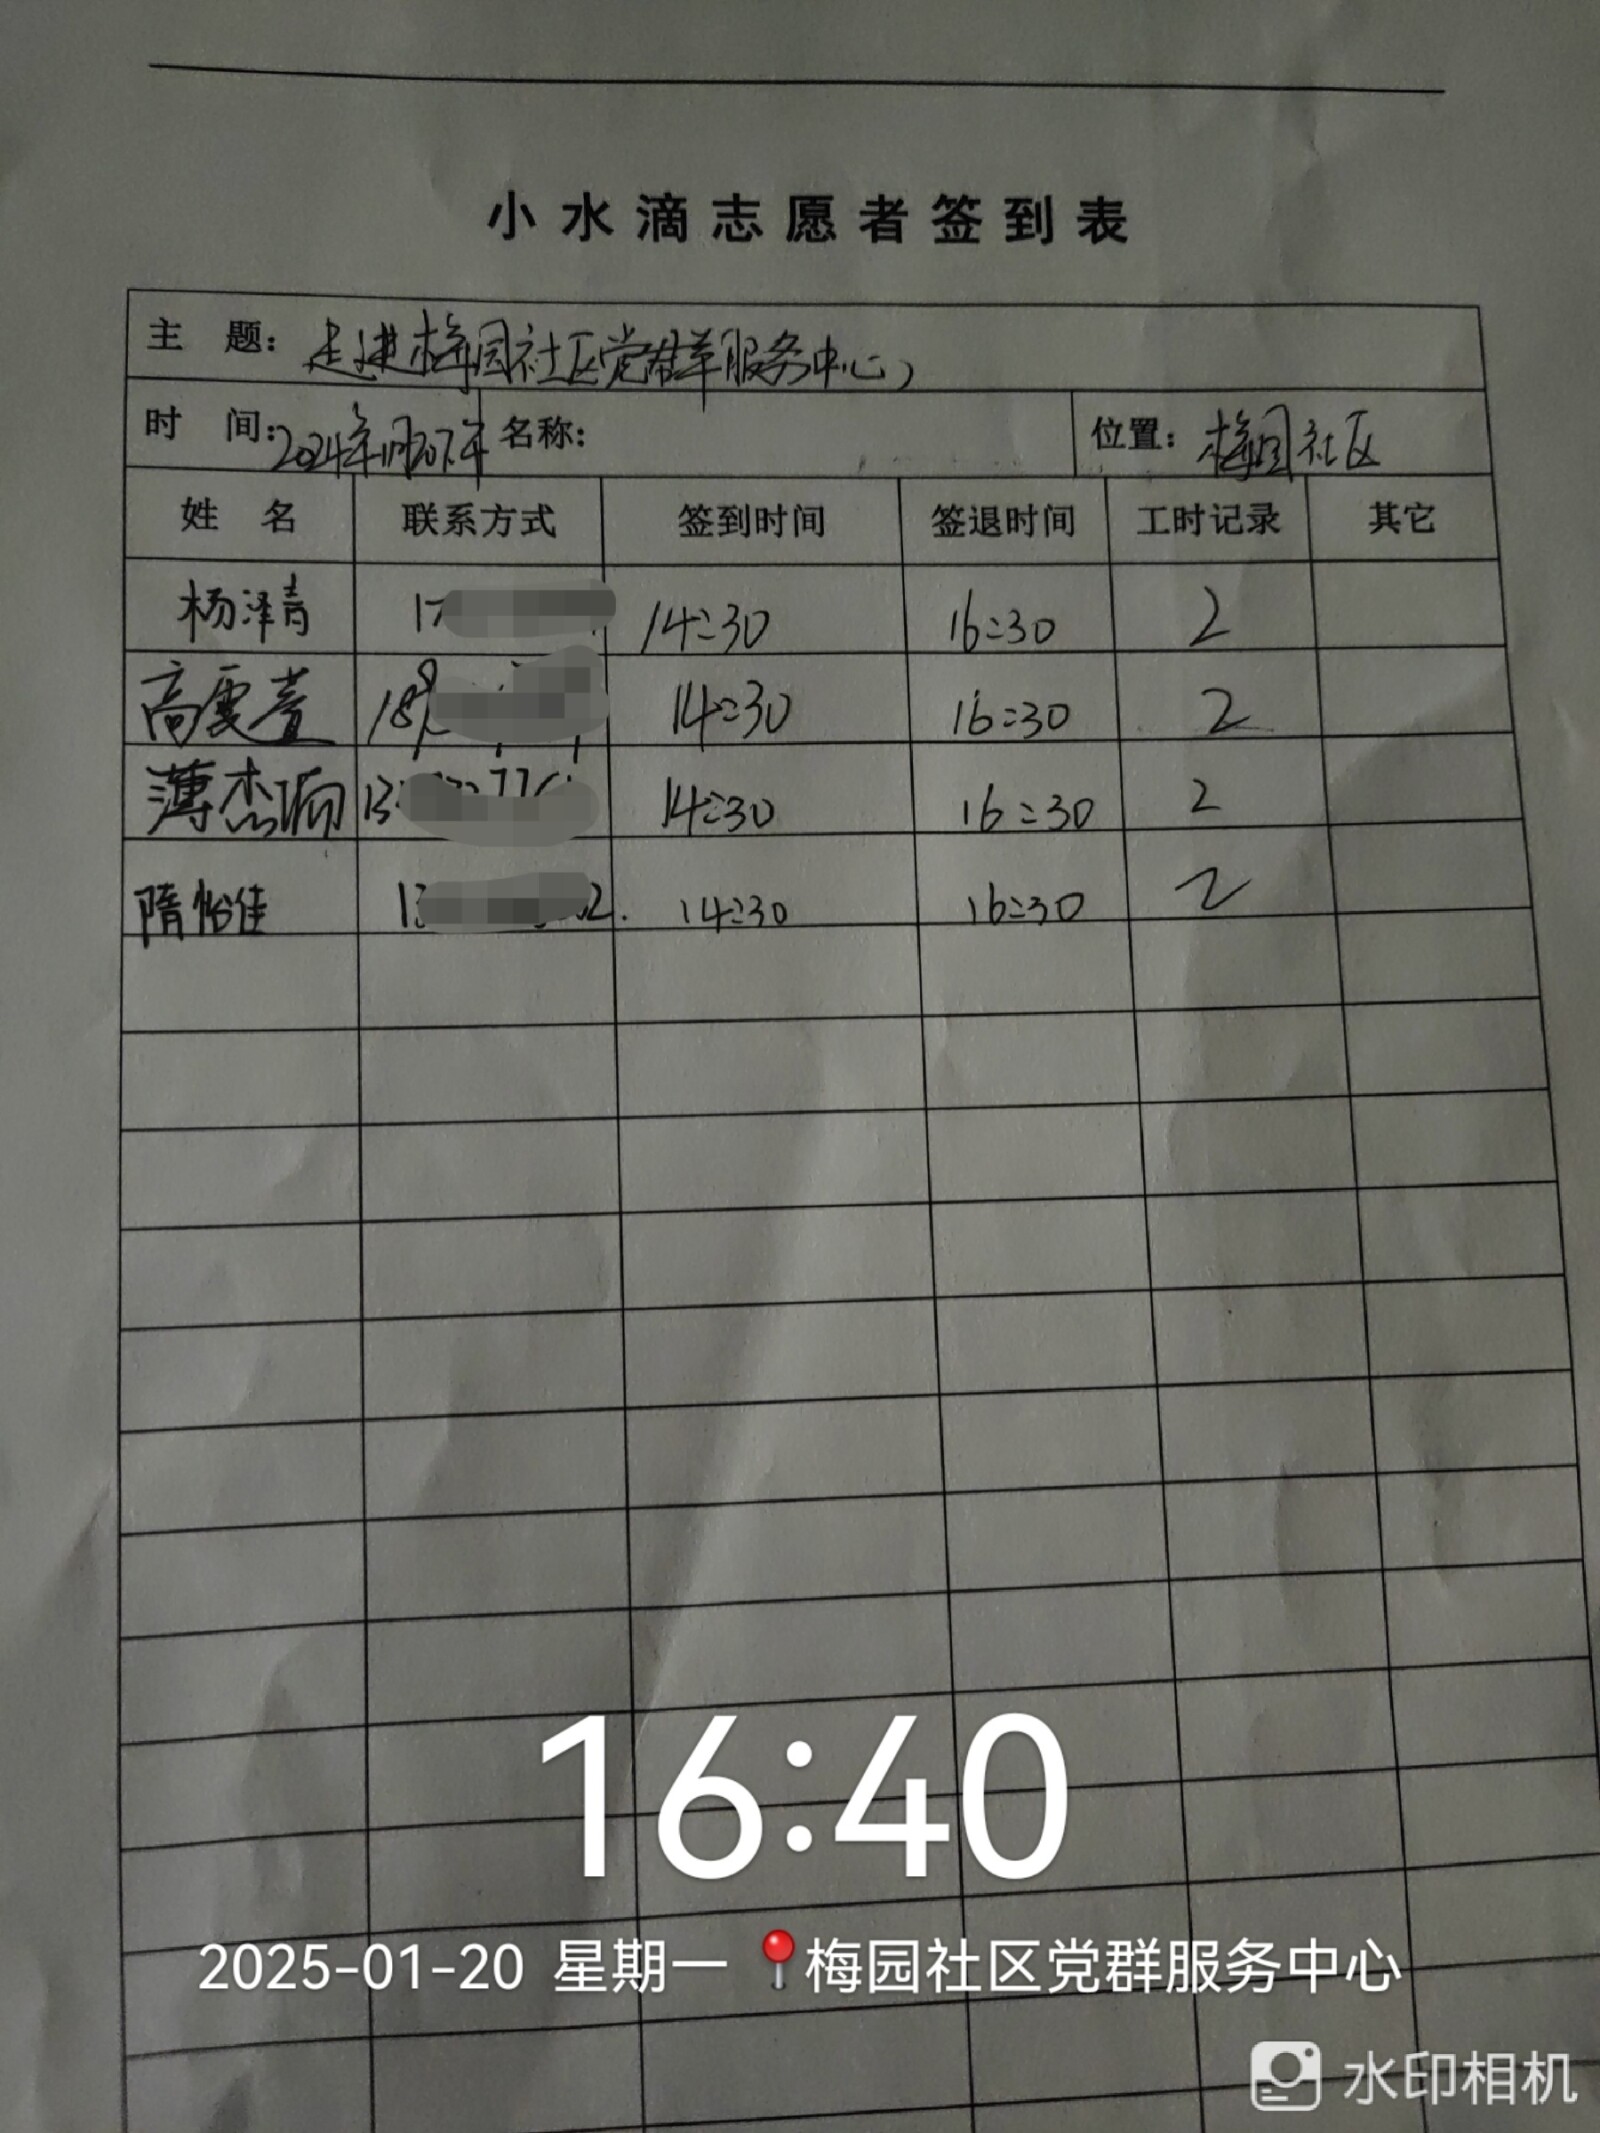 小水滴志愿者签到表
主 题：走进梅园社区党群服务中心
时 间：2024年1月20 名称： 位置：梅园社区
姓 名 联系方式 签到时间 签退时间 工时记录 其它
杨泽青 17 14:30 16:30 2
高雯萱 18 14:30 16:30 2
薄杰 13 14:30 16:30 2
隋怡佳 13 2. 14:30 16:30 2
16:40
2025-01-20 星期一 梅园社区党群服务中心
水印相机